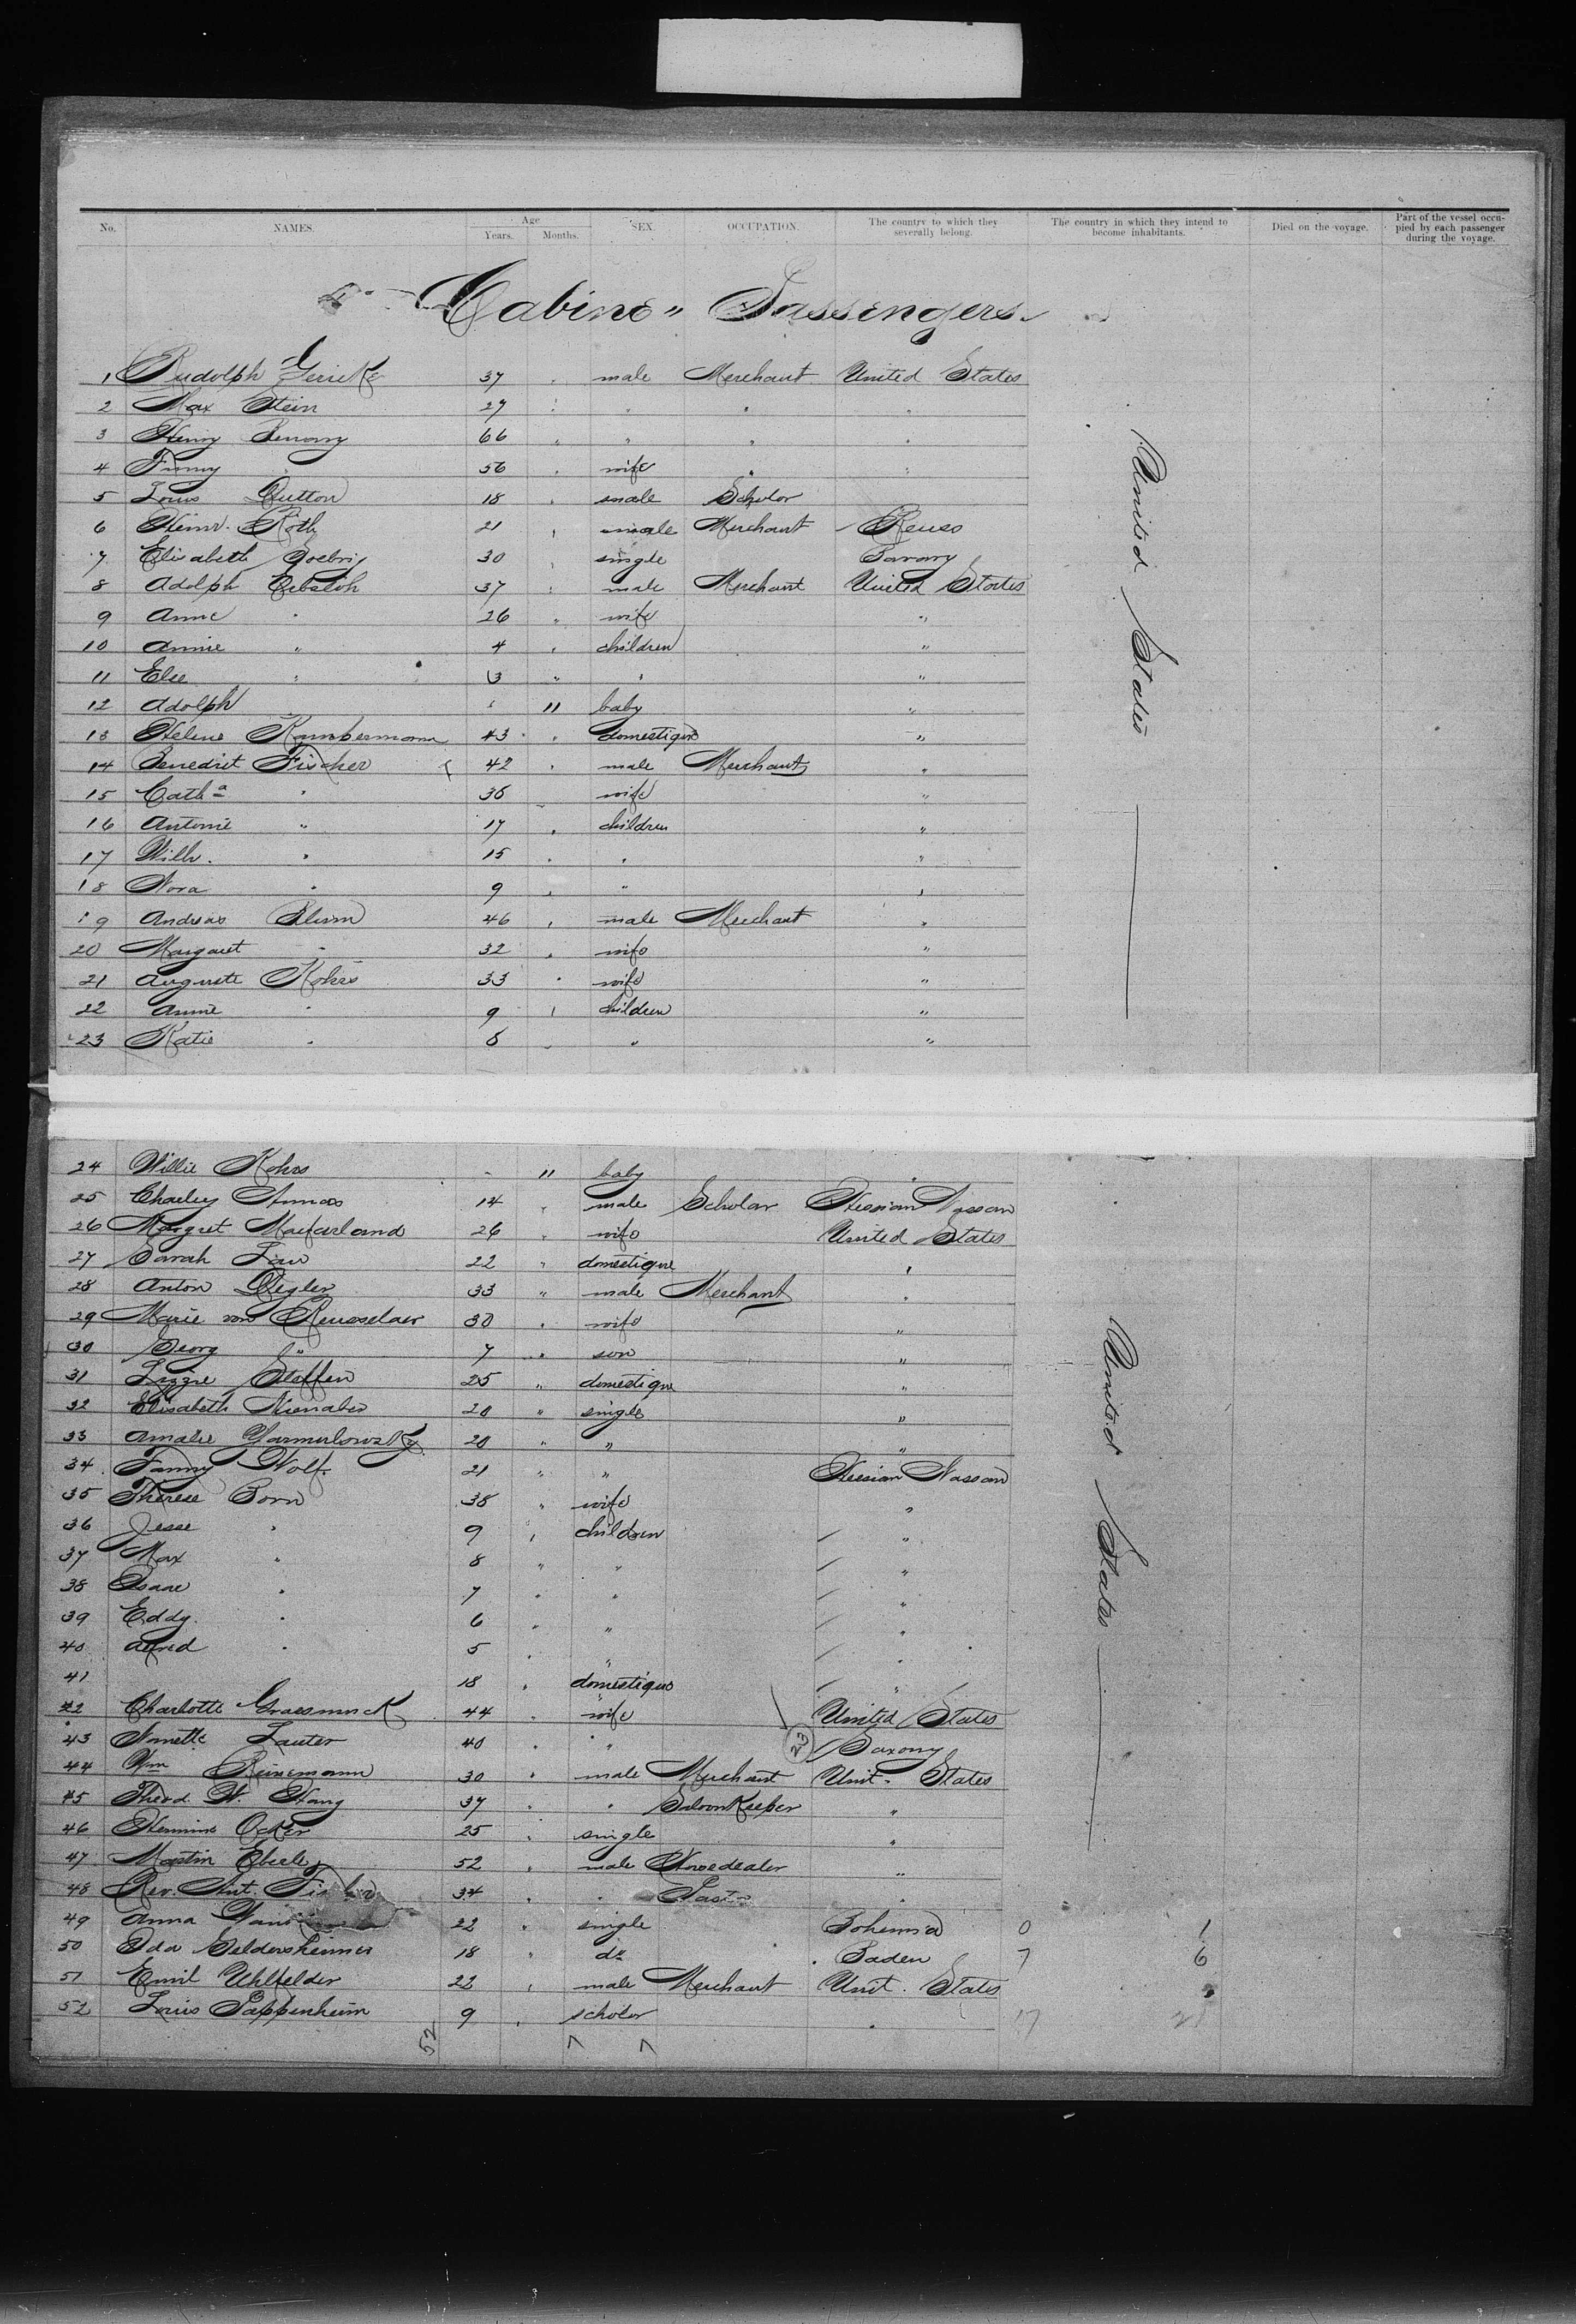 No. NAMES. Age Years. Months. SEX. OCCUPATION. The country to which they severally belong. The country in which they intend to become inhabitants. Died on the voyage. Part of the vessel occupied by each passenger during the voyage.
Cabine " Passengers
1 Rudolph Gericke 37 " male Merchant United States
2 Max Stein 27 " " " "
3 Henry 66 " " " "
4 Fanny " 56 " wife " "
5 Louis Dutton 18 " male Scholar
6 Heinr. Roth 21 " male Merchant Reuss
7 Elisabeth 30 " single
8 Adolph 37 " male Merchant United States
9 Anne " 26 " wife "
10 Annie " 4 " children "
11 Else " 3 " " "
12 Adolph " 11 baby "
13 Helene Kambermann 43 " domestique "
14 Benedict Fischer 42 " male Merchant "
15 Catha " 36 " wife "
16 Antonie " 17 " children "
17 Wilh. " 15 " " "
18 Nora " 9 " " "
19 Andreas Blum 46 " male Merchant "
20 Margaret " 32 " wife "
21 Auguste Kohrs 33 " wife "
22 Annie " 9 " children "
23 Katie " " " "
United States
24 Willie Kohrs " 11 baby "
25 Charley 14 " male Scholar Hessian Nassau
26 Margret Macfarland 26 " wife United States
27 Sarah Law 22 " domestique "
28 Anton 33 " male Merchant "
29 Marie von Rensselaer 30 " wife "
30 Georg " 7 " son "
31 Lizzie Steffen 25 " domestique "
32 Elisabeth Nienaber 20 " single "
33 Amalie Yarmulowsky 20 " " "
34 Fanny Wolf. 21 " " Hessian Nassau
35 Therese Born 38 " wife "
36 Jesse " 9 " children "
37 Max " 8 " " "
38 Isaac " 7 " " "
39 Eddy " 6 " " "
40 Alfred " 5 " " "
41 18 " domestique "
42 Charlotte Graesmuck 44 " wife United States
43 Nanette Lauter 40 " " Saxony
23
44 Wm Reinemann 30 " male Merchant Unit. States
45 Theod. W. Stang 37 " " Saloonkeeper "
46 Hermine Ocker 25 " single "
47 Martin Eberle 52 " male "
48 Rev. Ant. 34 " " "
49 Anna 22 " single Bohemia 0 1
50 Ida Geldersheimer 18 " do " Baden 7 6
51 Emil Uhlfelder 22 " male Merchant Unit. States
52 Louis Pappenheim 9 " scholar " 17 21
52 7 7
United States